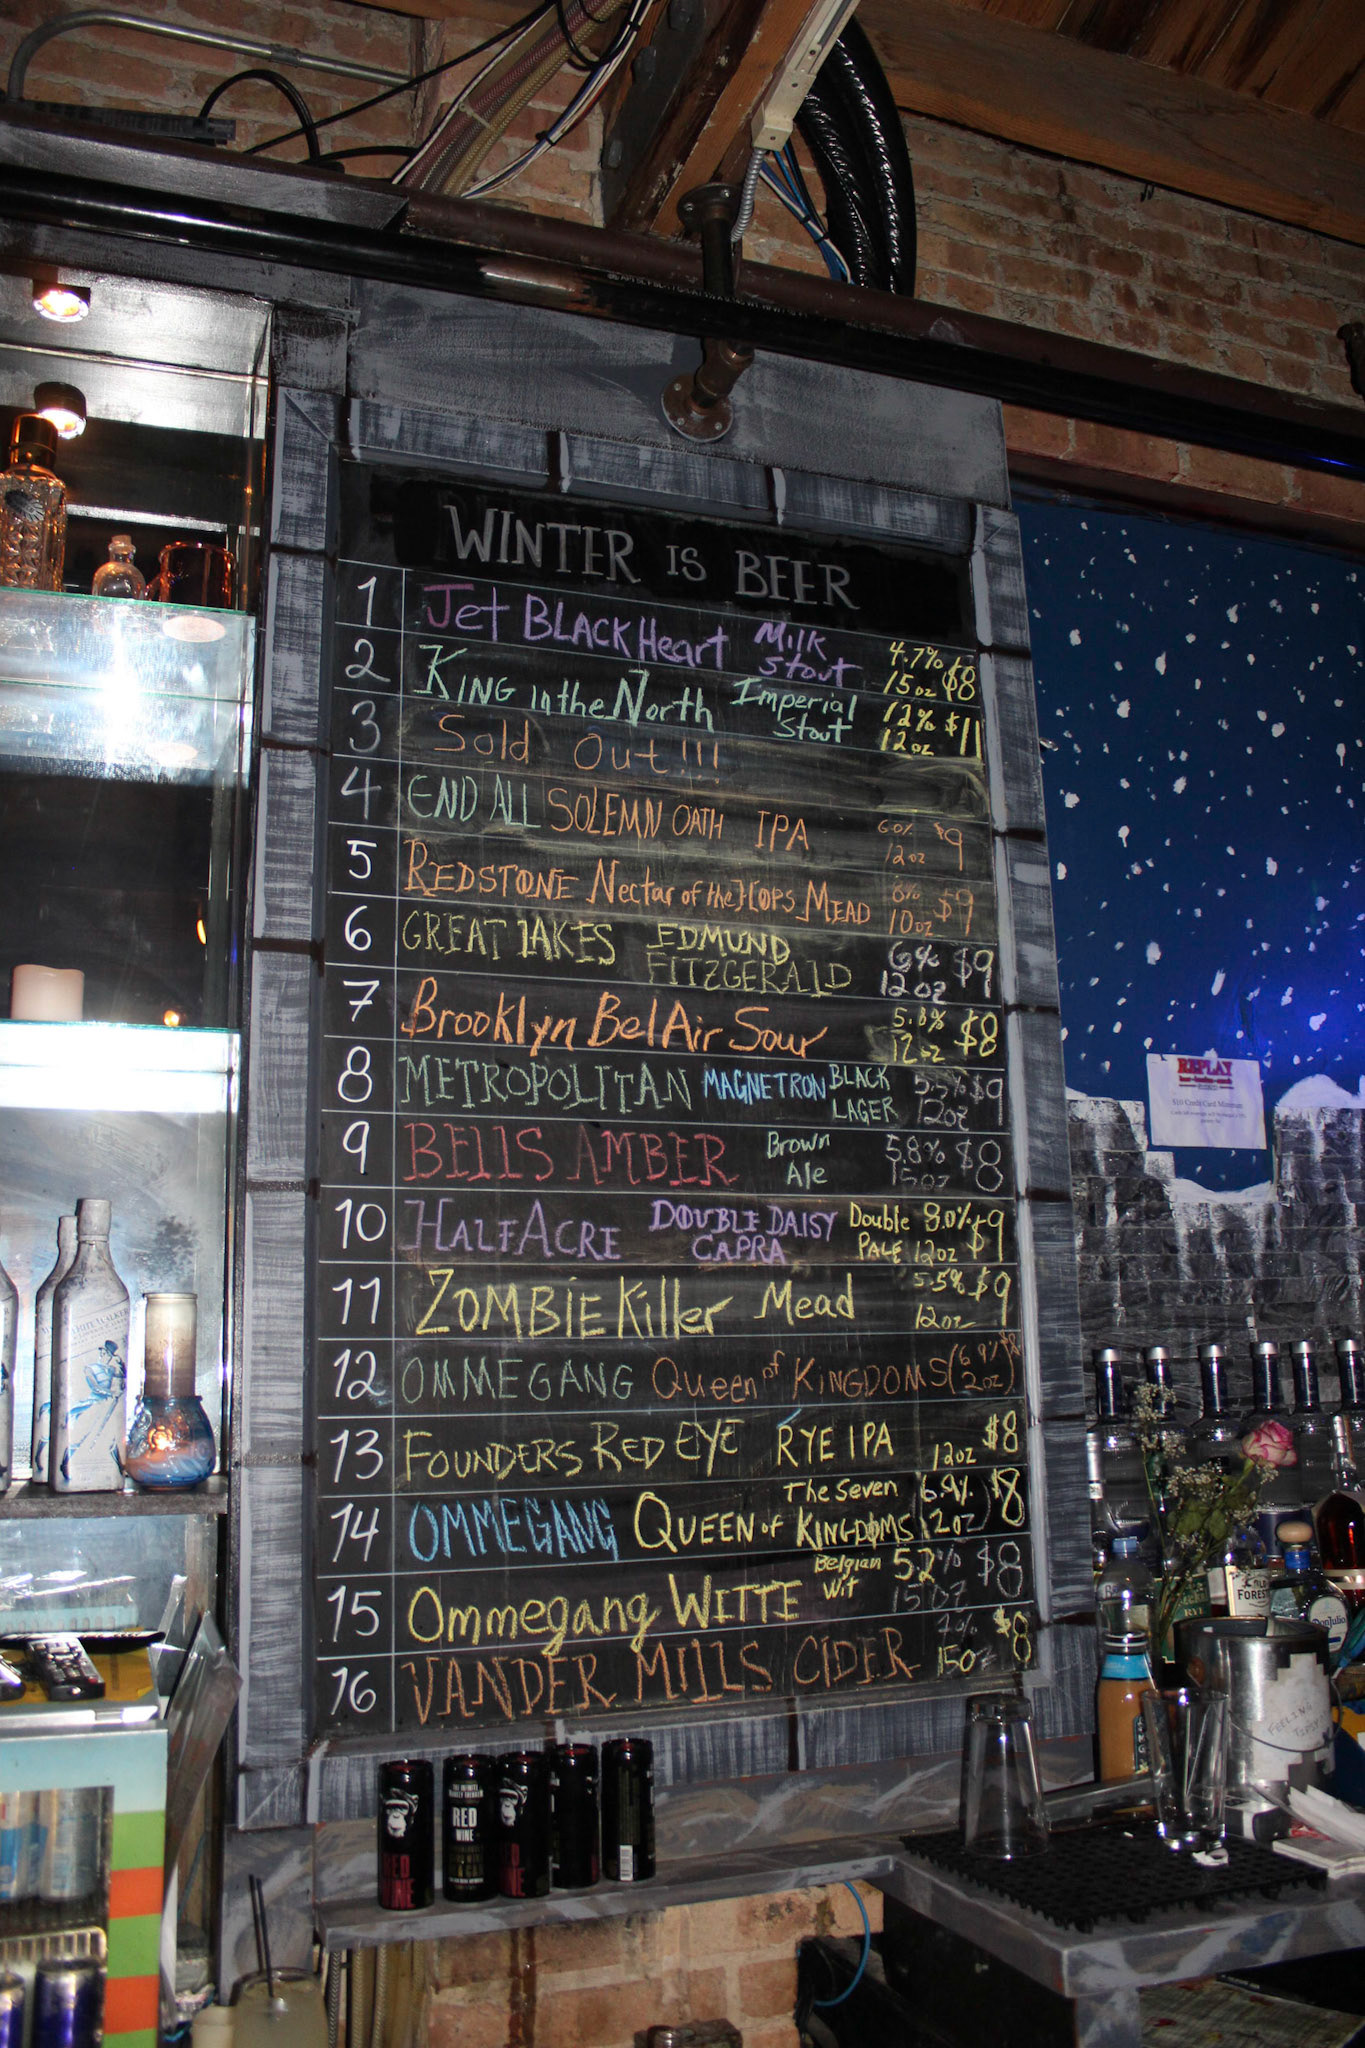 WINTER IS BEER
1 Jet BLACK Heart Milk Stout 4.7% 15oz $8
2 KING in the North Imperial Stout 12% 12oz $11
3 Sold Out!!!
4 END ALL SOLEMN OATH IPA 6.0% 12oz $9
5 REDSTONE Nectar of the HOPS MEAD 8% 10oz $9
6 GREAT LAKES EDMUND FITZGERALD 6% 12oz $9
7 Brooklyn Bel Air Sour 5.8% 12oz $8
8 METROPOLITAN MAGNETRON BLACK LAGER 5.5% 12oz $9
9 BELLS AMBER Brown Ale 5.8% 15oz $8
10 HALF ACRE DOUBLE DAISY CAPRA Double PALE 8.0% 12oz $9
11 ZOMBIE Killer Mead 5.5% 12oz $9
12 OMMEGANG Queen of KINGDOMS (6.9% 12oz) $8
13 FOUNDERS RED EYE RYE IPA 12oz $8
14 OMMEGANG QUEEN of The Seven KINGDOMS 6.9% 12oz $8
15 Ommegang WITTE Belgian Wit 5.2% 15oz $8
16 VANDER MILLS CIDER 7% 15oz $8
REPLAY
$10 Credit Card Minimum
WHITE WALKER
RED
WINE
RED
RYE
FOREST
Don Julio
FEELING
TIPSY